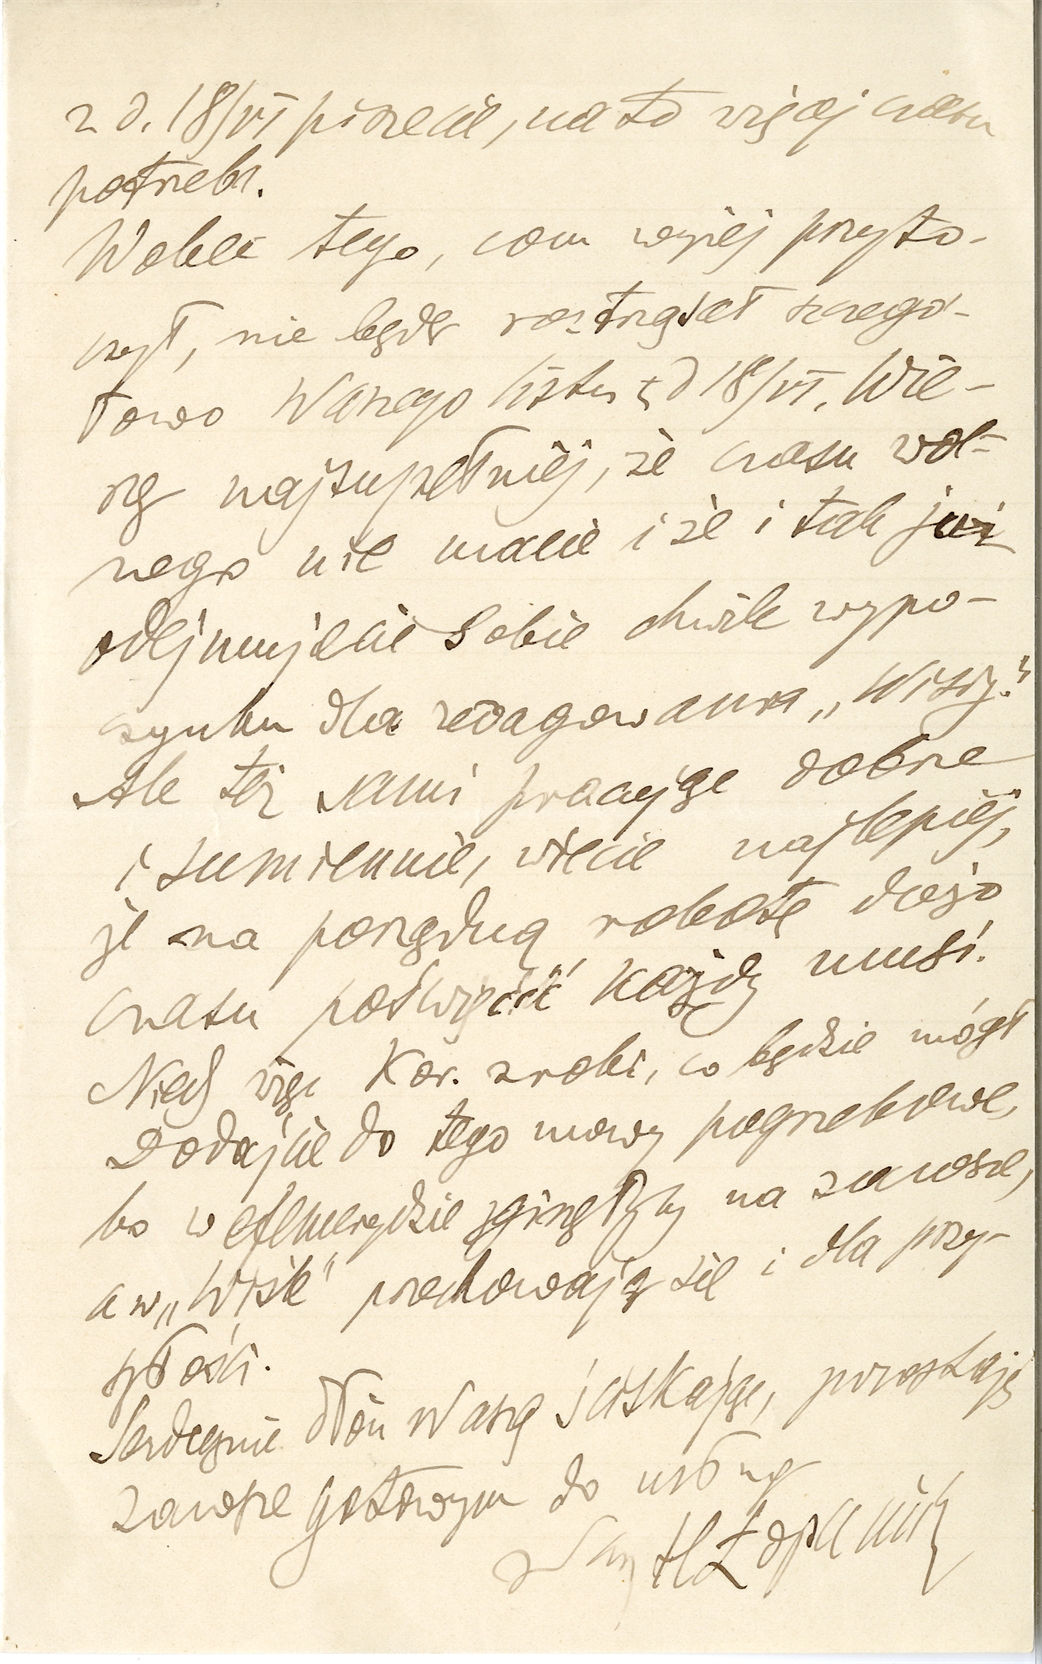 z d. 18/VI piszecie, na to więcej czasu
potrzeba.
Wobec tego, com wyżej przyto-
czył, nie będę roztrząsał szczegó-
łowo Waszego listu z d 18/VI. Wie-
rzę najzupełniej, że czasu wol-
nego nie macie i że i tak już
odejmujecie sobie chwile wypo-
czynku dla redagowania „Wisły."
Ale też sami pracując dobrze
i sumiennie, wiecie najlepiej,
że na porządną robotę dużo
czasu poświęcić każdy musi.
Niech więc Kar. zrobi, co będzie mógł
Dodajcie do tego mowy pogrzebowe,
bo w efemerydzie zginęłyby na zawsze,
a w „Wiśle" przechowają się i dla przy-
szłości.
Serdecznie dłoń Waszą ściskając, pozostaję
zawsze gotowym do usług
Wasz H Łopaciński